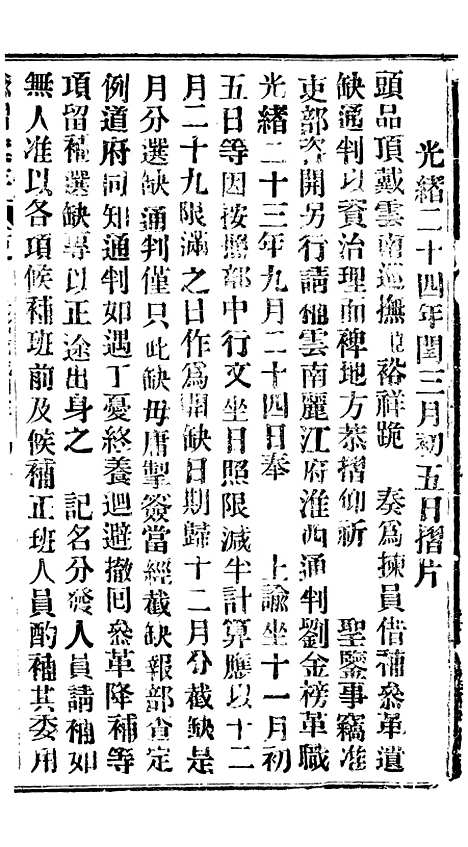 光緒二十四年閏三月初五日摺片
頭品頂戴雲南巡撫 裕祥跪 奏爲揀員借補叅革遺
缺通判以資治理而裨地方恭摺仰祈 聖鑒事竊准
吏部咨開另行請補雲南麗江府淮西通判劉金榜革職
光緒二十三年九月二十四日奉 上諭坐十一月初
五日等因按照部中行文坐日照限減半計算應以十二
月二十九限滿之日作爲開缺日期歸十二月分截缺是
月分選缺通判僅只此缺毋庸掣簽當經截缺報部查定
例道府同知通判如遇丁憂終養迴避撤回叅革降補等
項留補選缺專以正途出身之 記名分發人員請補如
無人准以各項候補班前及候補正班人員酌補其委用